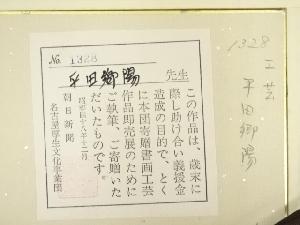 No. 1328
平田郷陽 先生
この作品は、歳末に
際し助け合い義援金
造成の目的で、とく
に本団寄贈書画工芸
作品即売展のために
ご執筆、ご寄贈いた
だいたものです。
昭和四十八年十二月
朝日新聞
名古屋厚生文化事業団
1328
工芸
平田郷陽